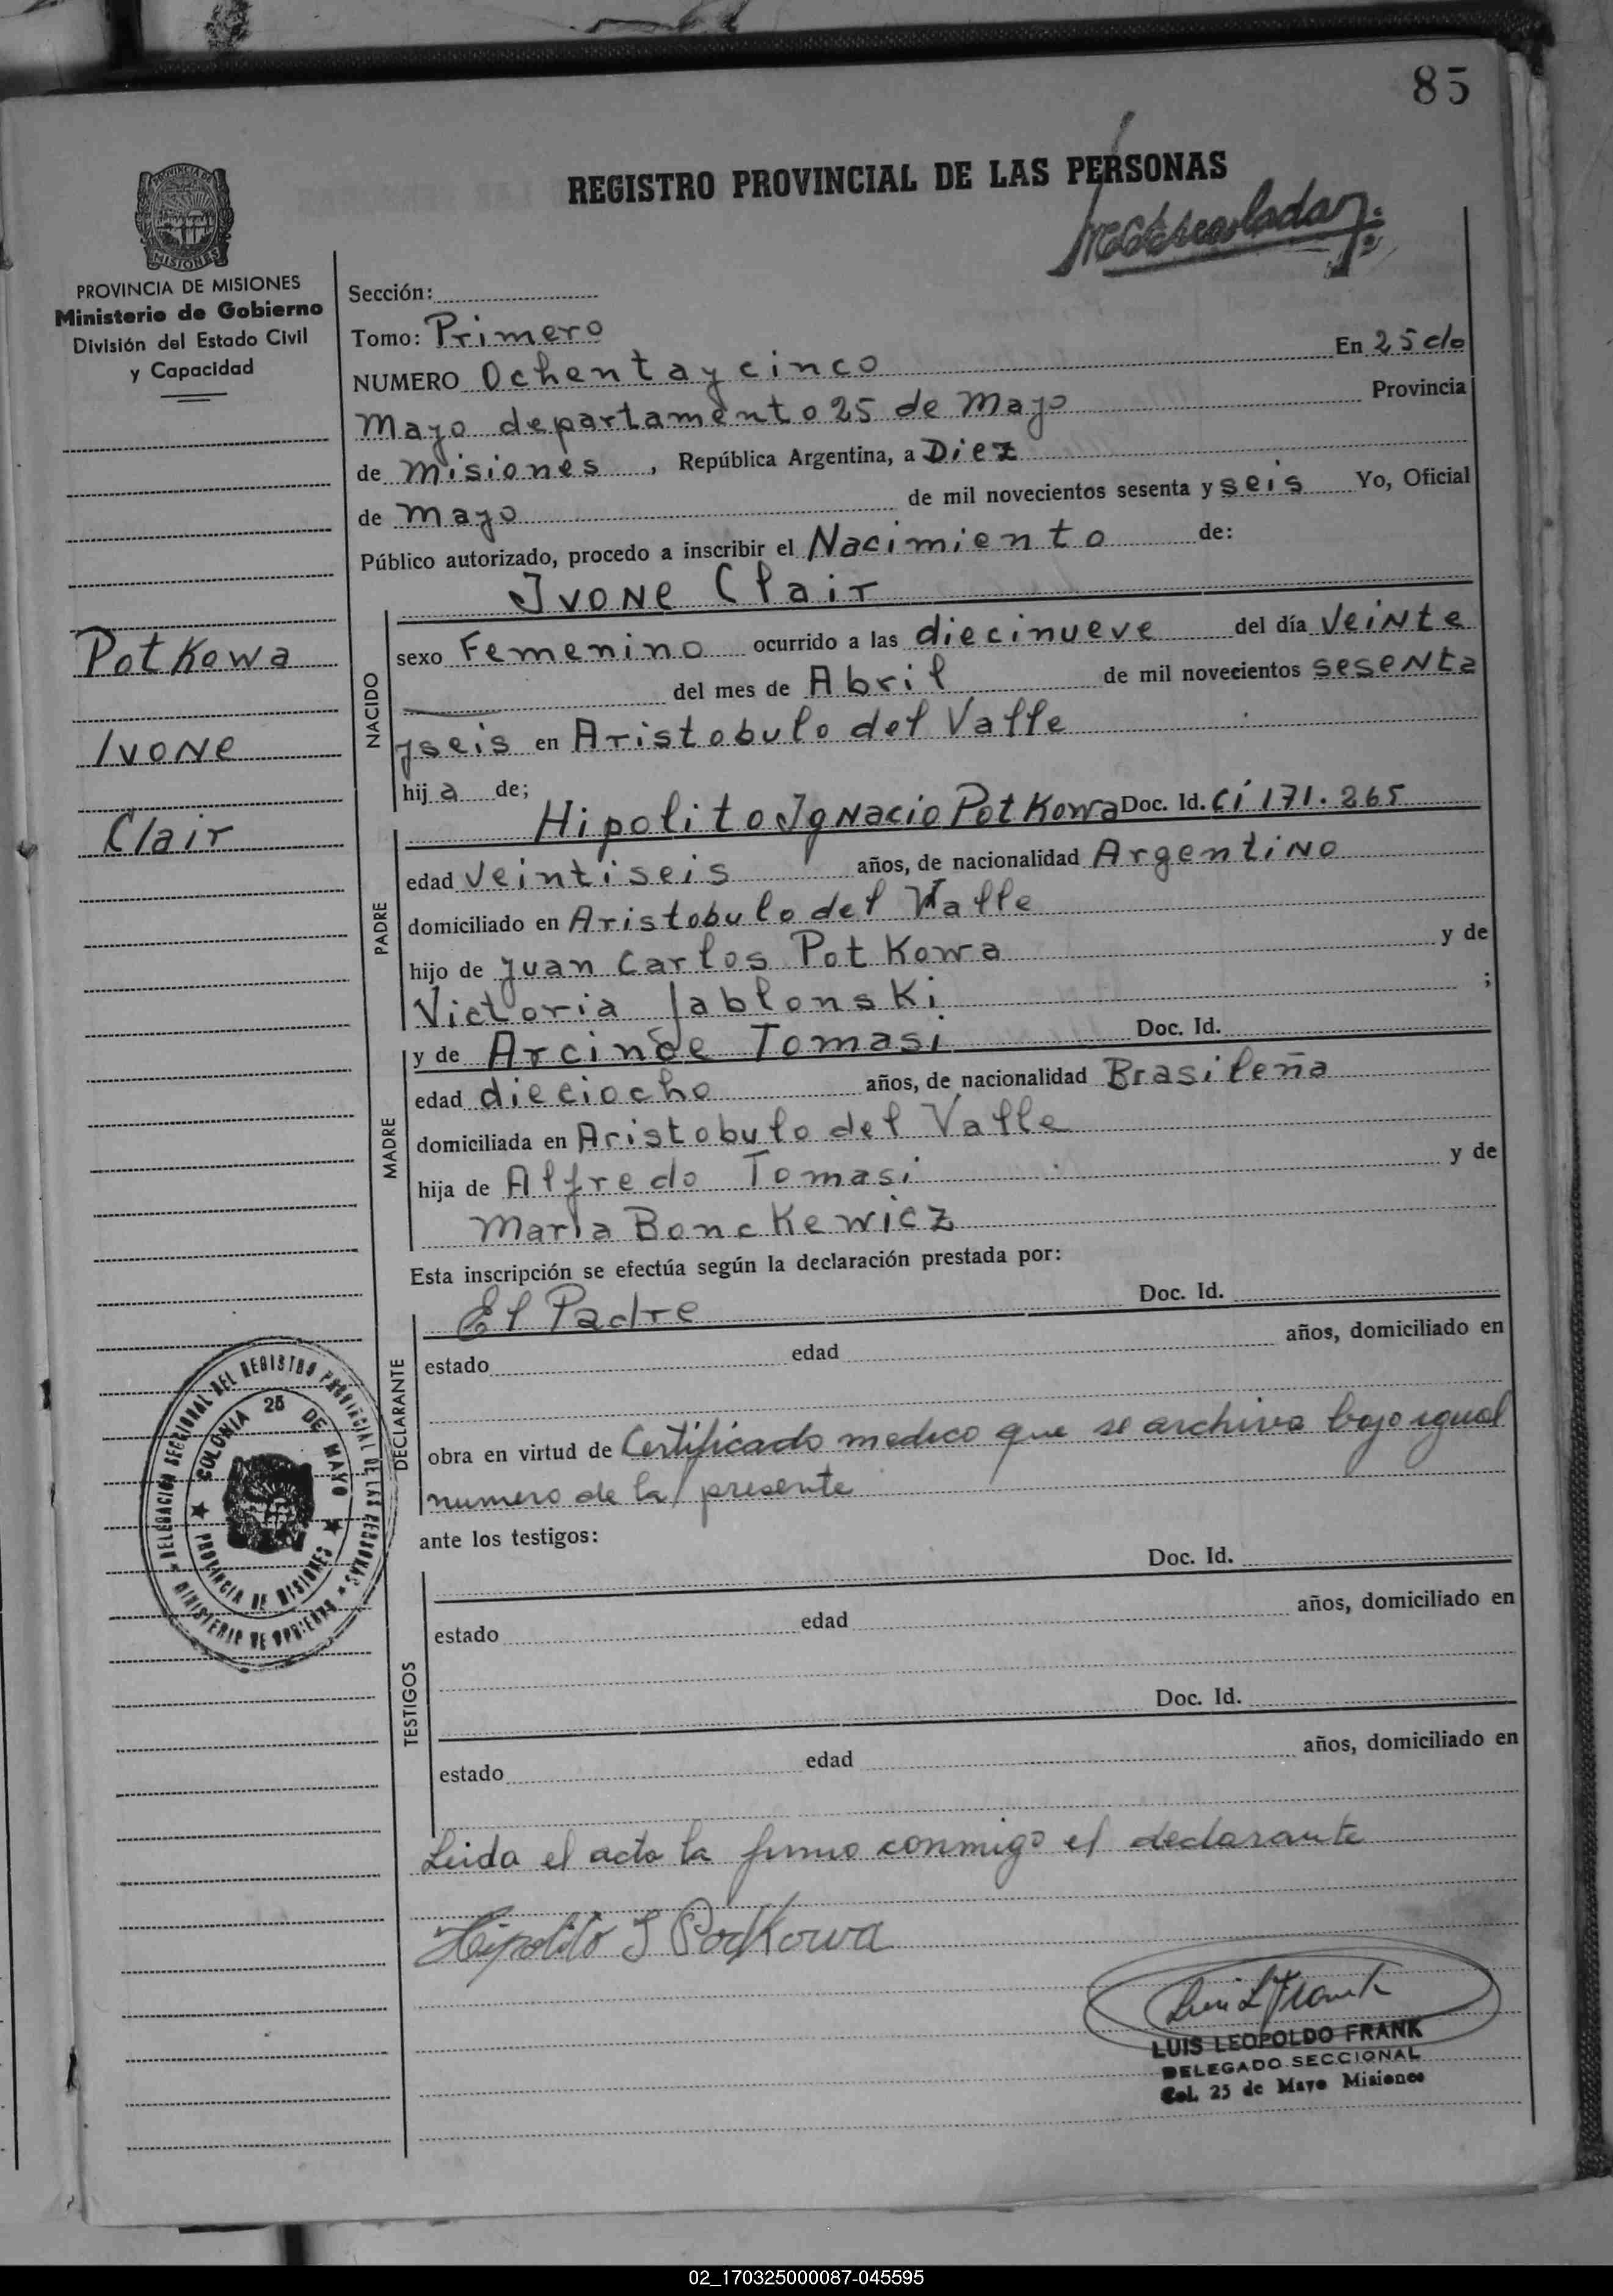 85
REGISTRO PROVINCIAL DE LAS PERSONAS
PROVINCIA DE MISIONES
Ministerio de Gobierno
División del Estado Civil
y Capacidad
Potkowa
Ivone
Clair
Sección:
Tomo: Primero
NUMERO Ochenta y cinco En 25 de
Mayo departamento 25 de Mayo Provincia
de Misiones, República Argentina, a Diez
de Mayo de mil novecientos sesenta y seis Yo, Oficial
Público autorizado, procedo a inscribir el Nacimiento de:
Ivone Clair
NACIDO
sexo Femenino ocurrido a las diecinueve del día veinte
del mes de Abril de mil novecientos sesenta
y seis en Aristobulo del Valle
hija de;
Hipolito Ignacio Potkowa Doc. Id. Ci 171.265
PADRE
edad veintiseis años, de nacionalidad Argentino
domiciliado en Aristobulo del Valle
hijo de Juan Carlos Potkowa y de
Victoria Jablonski ;
y de Arcinde Tomasi Doc. Id.
MADRE
edad dieciocho años, de nacionalidad Brasileña
domiciliada en Aristobulo del Valle
hija de Alfredo Tomasi y de
Maria Bonckewicz
Esta inscripción se efectúa según la declaración prestada por:
El Padre Doc. Id.
DECLARANTE
estado edad años, domiciliado en
obra en virtud de Certificado medico que se archiva bajo igual
numero de la presente
ante los testigos:
Doc. Id.
TESTIGOS
estado edad años, domiciliado en
Doc. Id.
estado edad años, domiciliado en
Leida el acta la firma conmigo el declarante
Hipolito I Podkowa
DELEGACION SECCIONAL DEL REGISTRO PROVINCIAL DE LAS PERSONAS
MINISTERIO DE GOBIERNO
COLONIA 25 DE MAYO
PROVINCIA DE MISIONES
Luis L Frank
LUIS LEOPOLDO FRANK
DELEGADO SECCIONAL
Col. 25 de Mayo Misiones
02_170325000087-045595